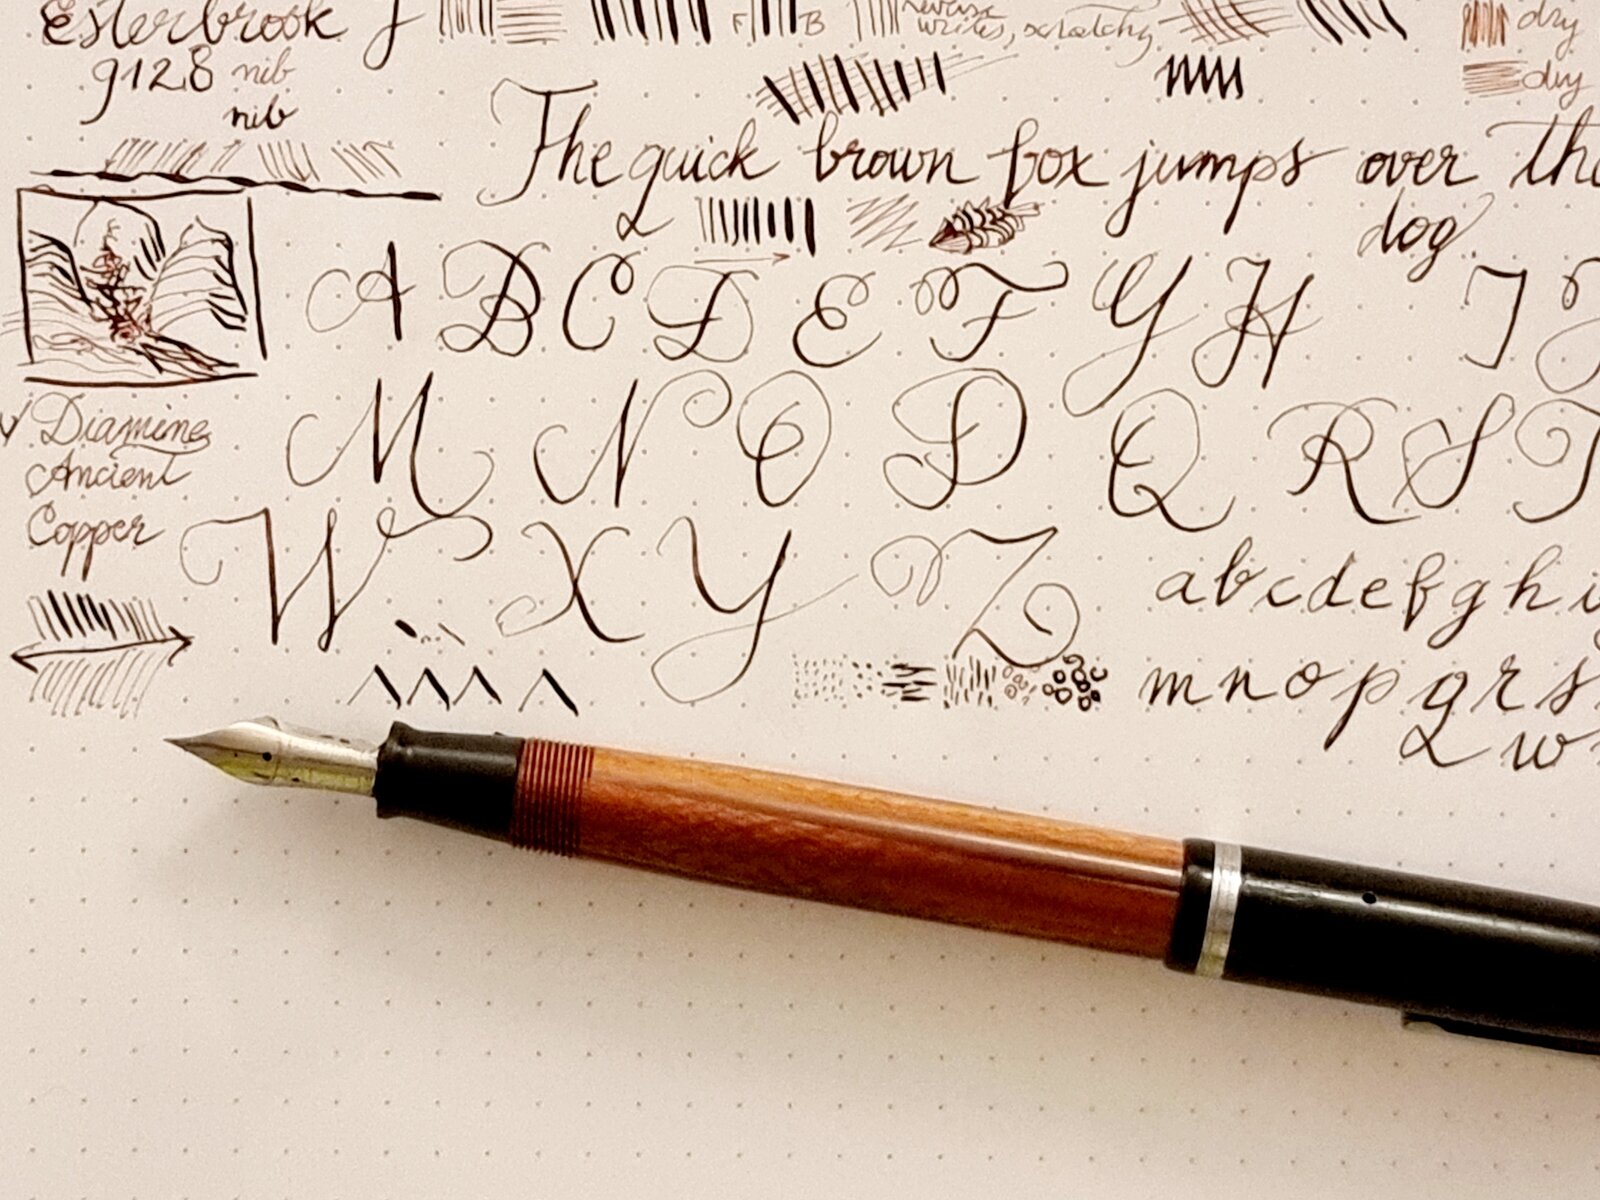 Esterbrook J
9128 nib
nib
F B
reverse
writes, scratchy
dry
dry
The quick brown fox jumps over the
dog
A B C D E F G H I J
M N O P Q R S T
W X Y Z
Diamine
Ancient
Copper
a b c d e f g h i
m n o p q r s
w